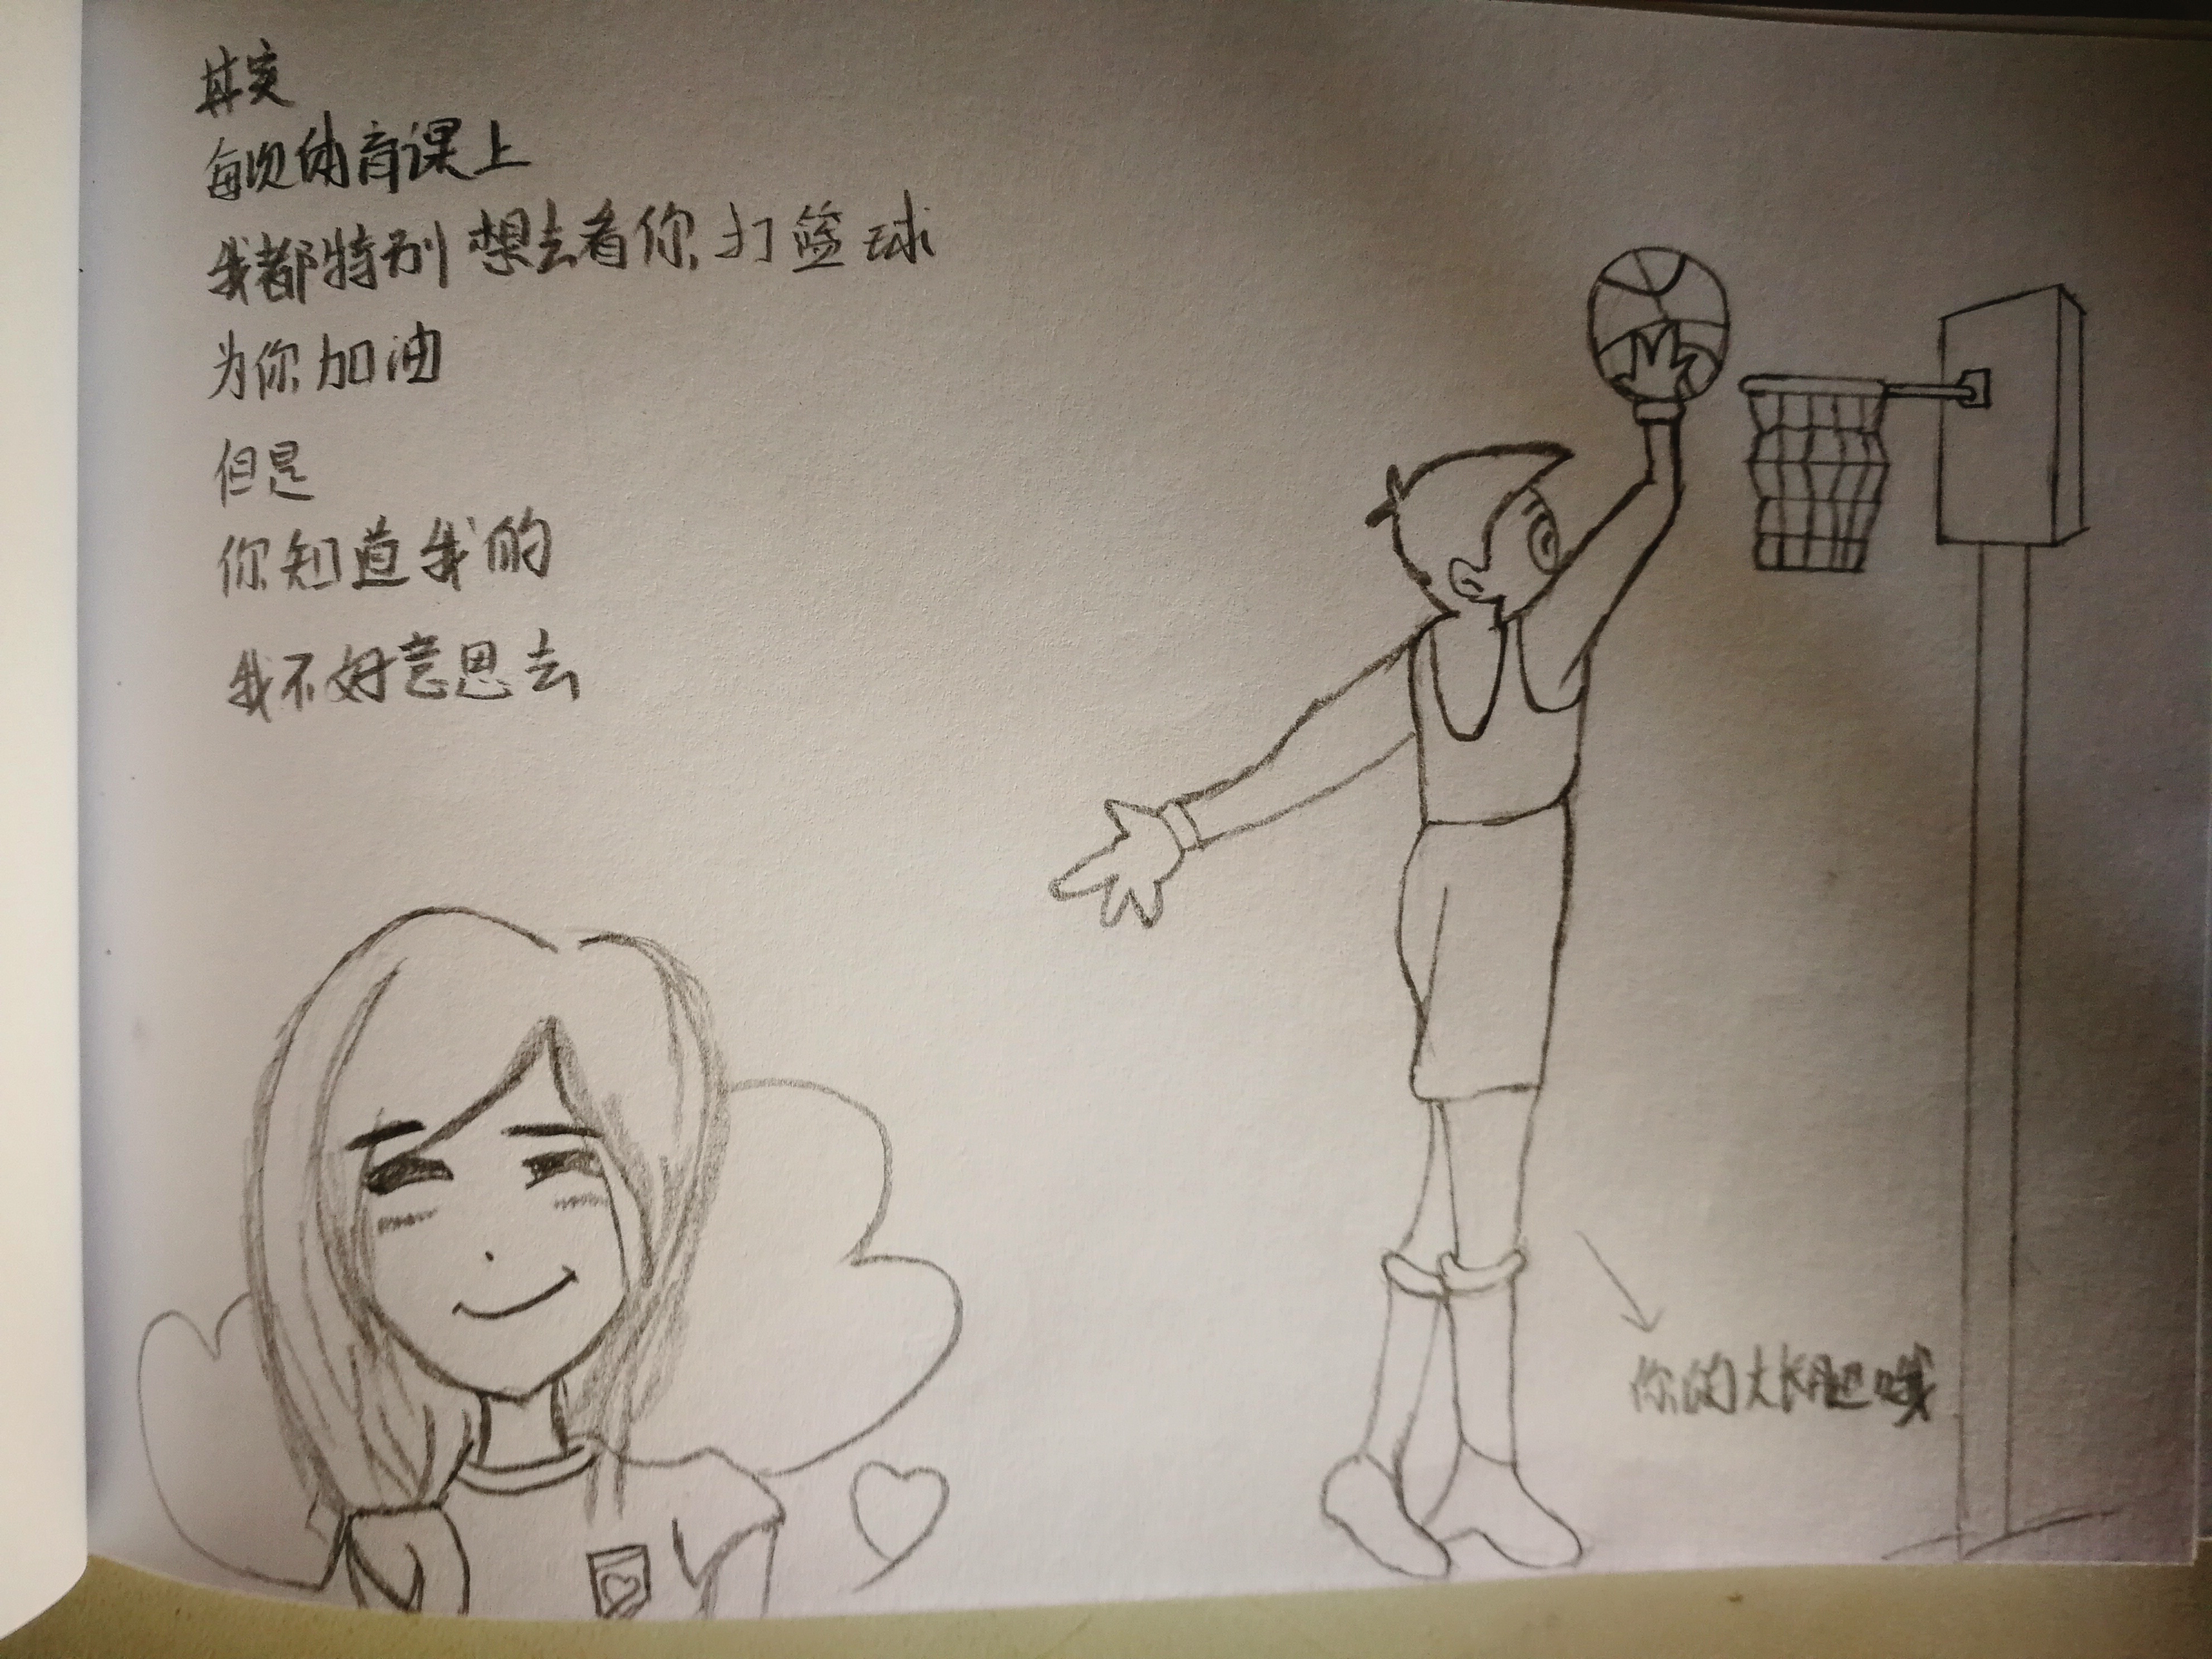 其实
每次体育课上
我都特别想去看你打篮球
为你加油
但是
你知道我的
我不好意思去
你的大长腿哦